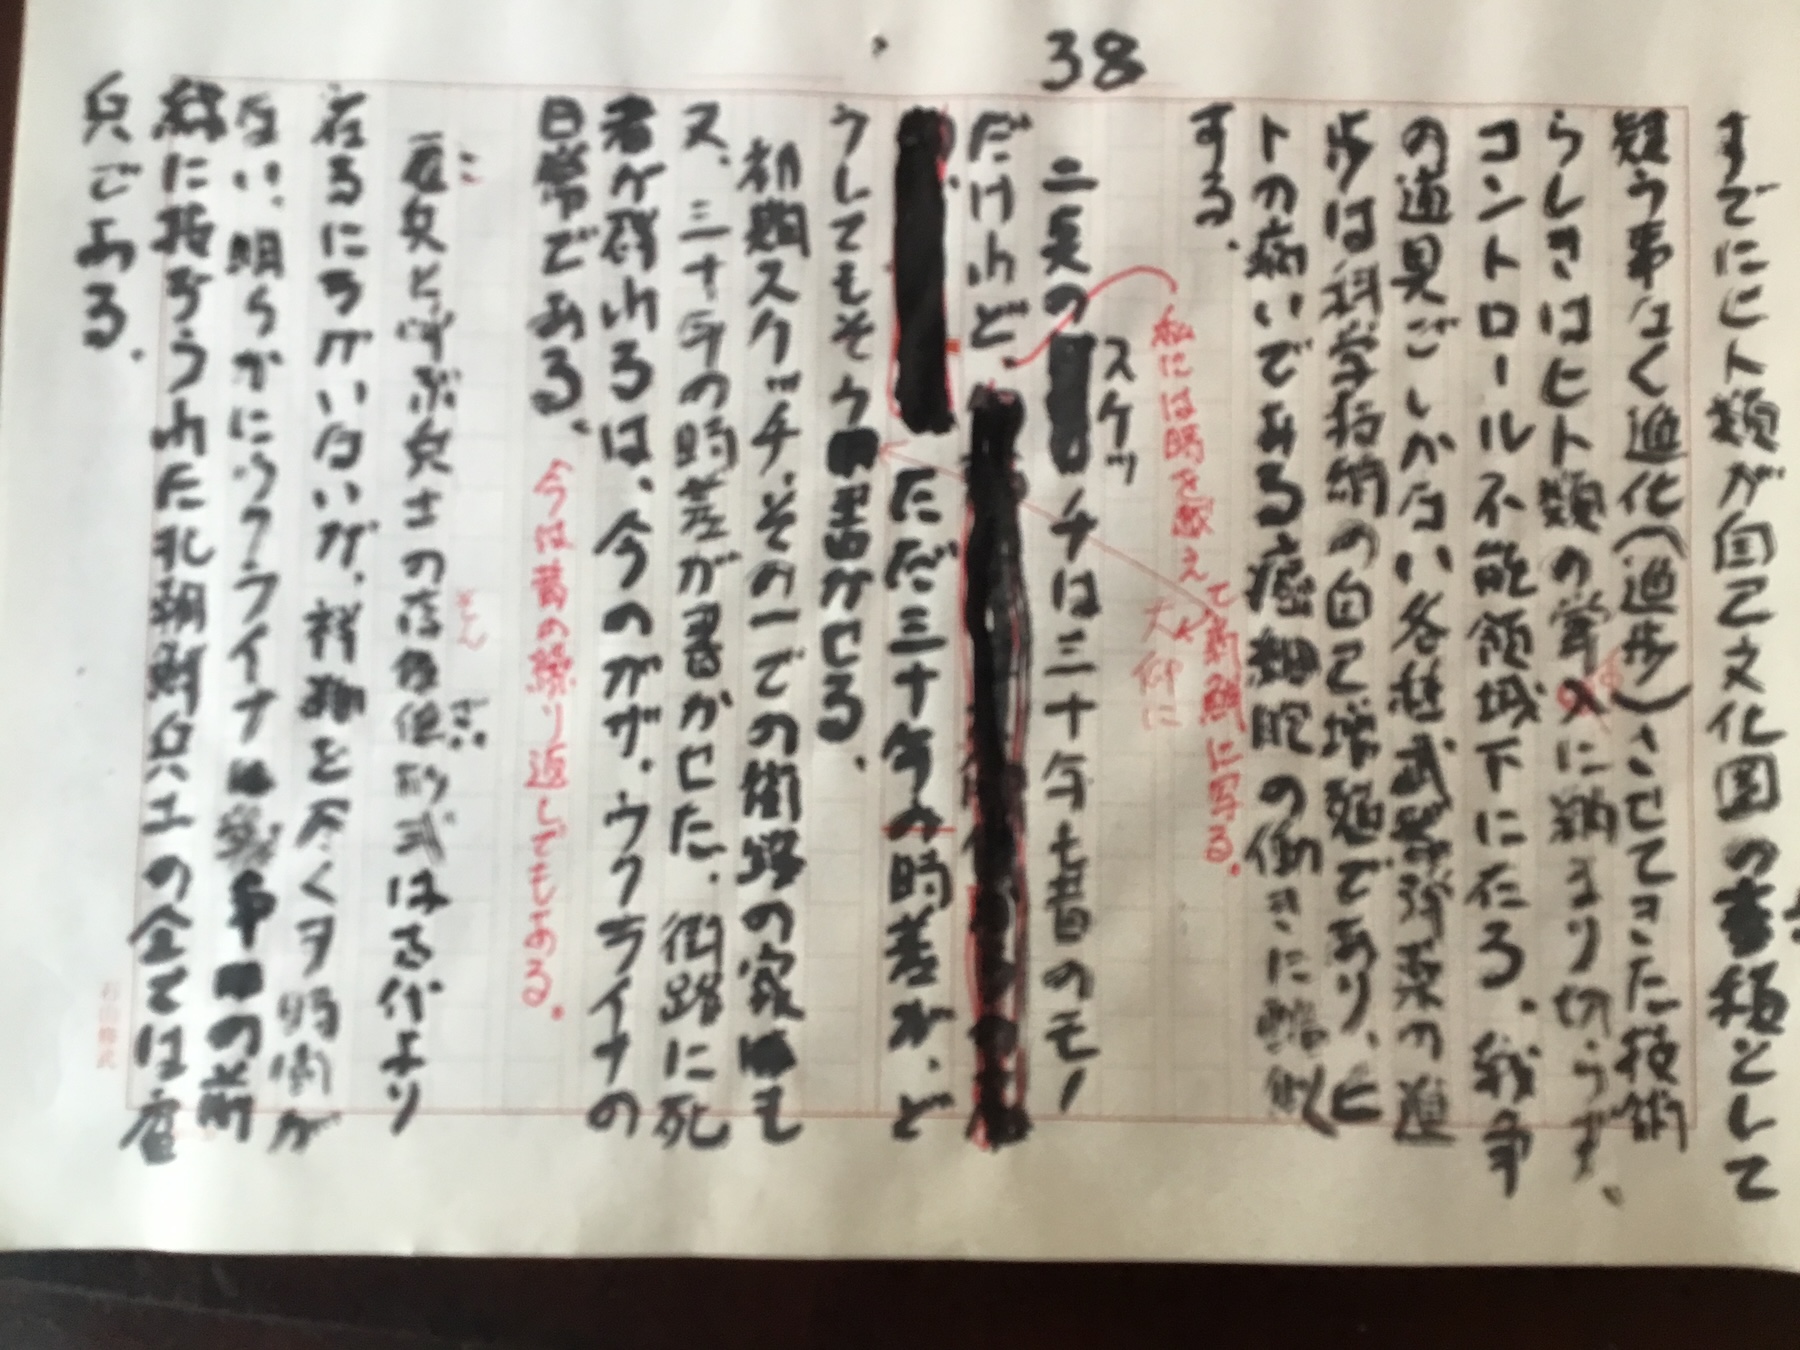 38
すでにヒト類が自己文化圏の蓄積として
疑う事なく進化(進歩)させてきた技術
らしきはヒト類の掌に納まり切らず、
コントロール不能領域下に在る。戦争
の道具ごしかない各種武器弾薬の進
歩は科学技術の自己増殖であり、ヒ
トの病いである癌細胞の働きに酷似
する。
私には時を越え
て新鮮に写る。
大仰に
スケッ
二点の チは三十年も昔のモノ
だけれど
ただ三十年の時差が、ど
うしてもそう書かせる。
初期スケッチ、その一での街路の家も
又、三十年の時差が書かせた。街路に死
者が群れるは、今のガザ、ウクライナの
日常である。
今は昔の繰り返しでもある。
兵と呼ぶ兵士の存在 は古代より
在るにちがいないが、祥細を尽くす時間が
ない、明らかにウクライナ 戦争の前
線に投ぞうれた北朝鮮兵士の全ては雇
兵である。